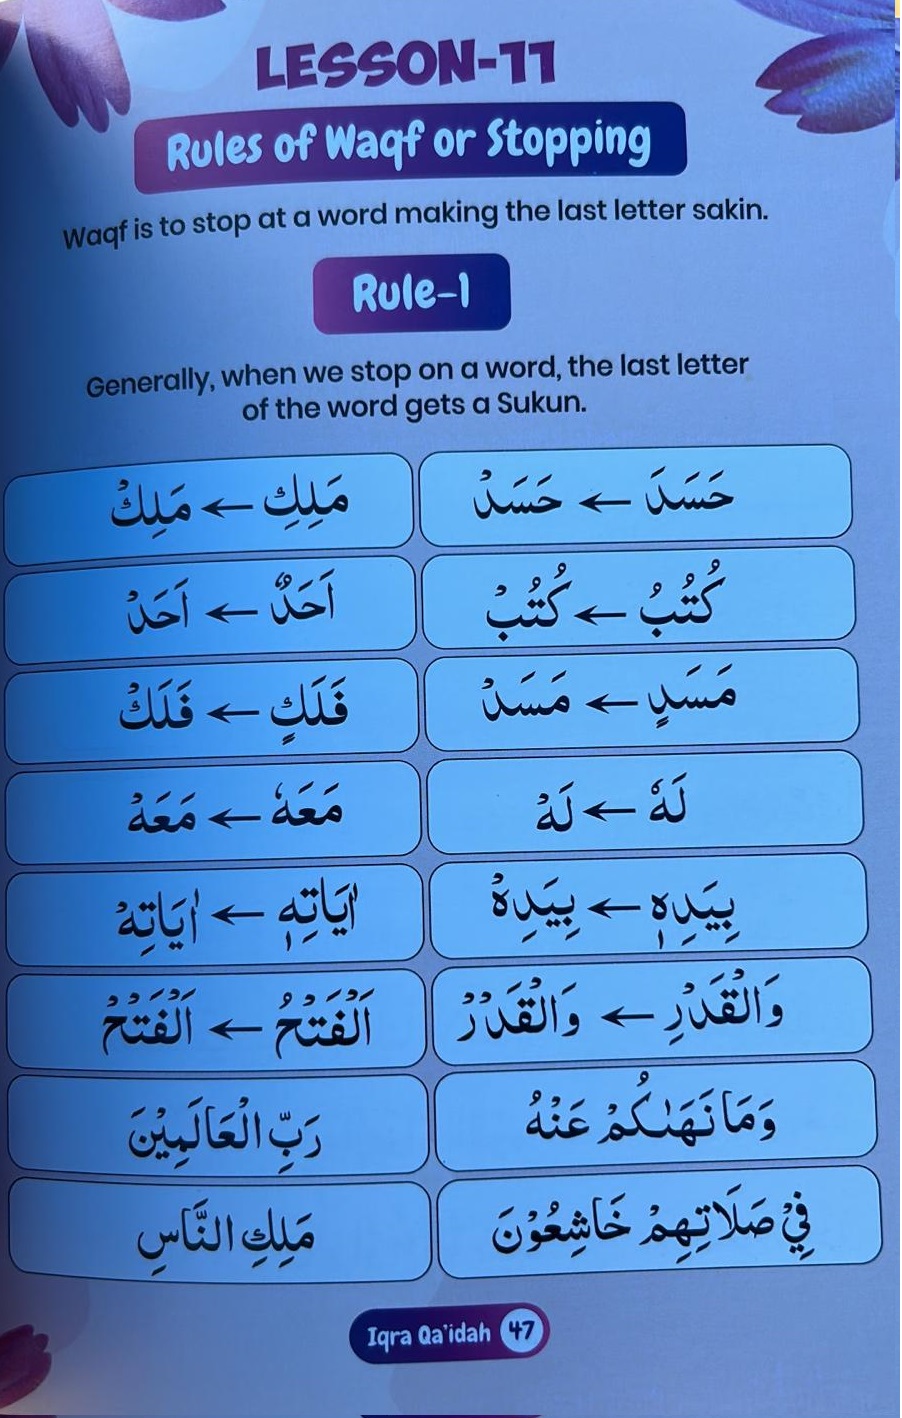 LESSON-11
Rules of Waqf or Stopping
Waqf is to stop at a word making the last letter sakin.
Rule-1
Generally, when we stop on a word, the last letter
of the word gets a Sukun.
حَسَدَ ← حَسَدْ
مَلِكِ ← مَلِكْ
كُتُبُ ← كُتُبْ
اَحَدٌ ← اَحَدْ
مَسَدٍ ← مَسَدْ
فَلَكٍ ← فَلَكْ
لَهٗ ← لَهْ
مَعَهٗ ← مَعَهْ
بِيَدِهٖ ← بِيَدِهْ
اٰيَاتِهٖ ← اٰيَاتِهْ
وَالْقَدْرِ ← وَالْقَدْرْ
اَلْفَتْحُ ← اَلْفَتْحْ
وَمَا نَهٰىكُمْ عَنْهُ
رَبِّ الْعَالَمِيْنَ
فِيْ صَلَاتِهِمْ خَاشِعُوْنَ
مَلِكِ النَّاسِ
Iqra Qa'idah 47